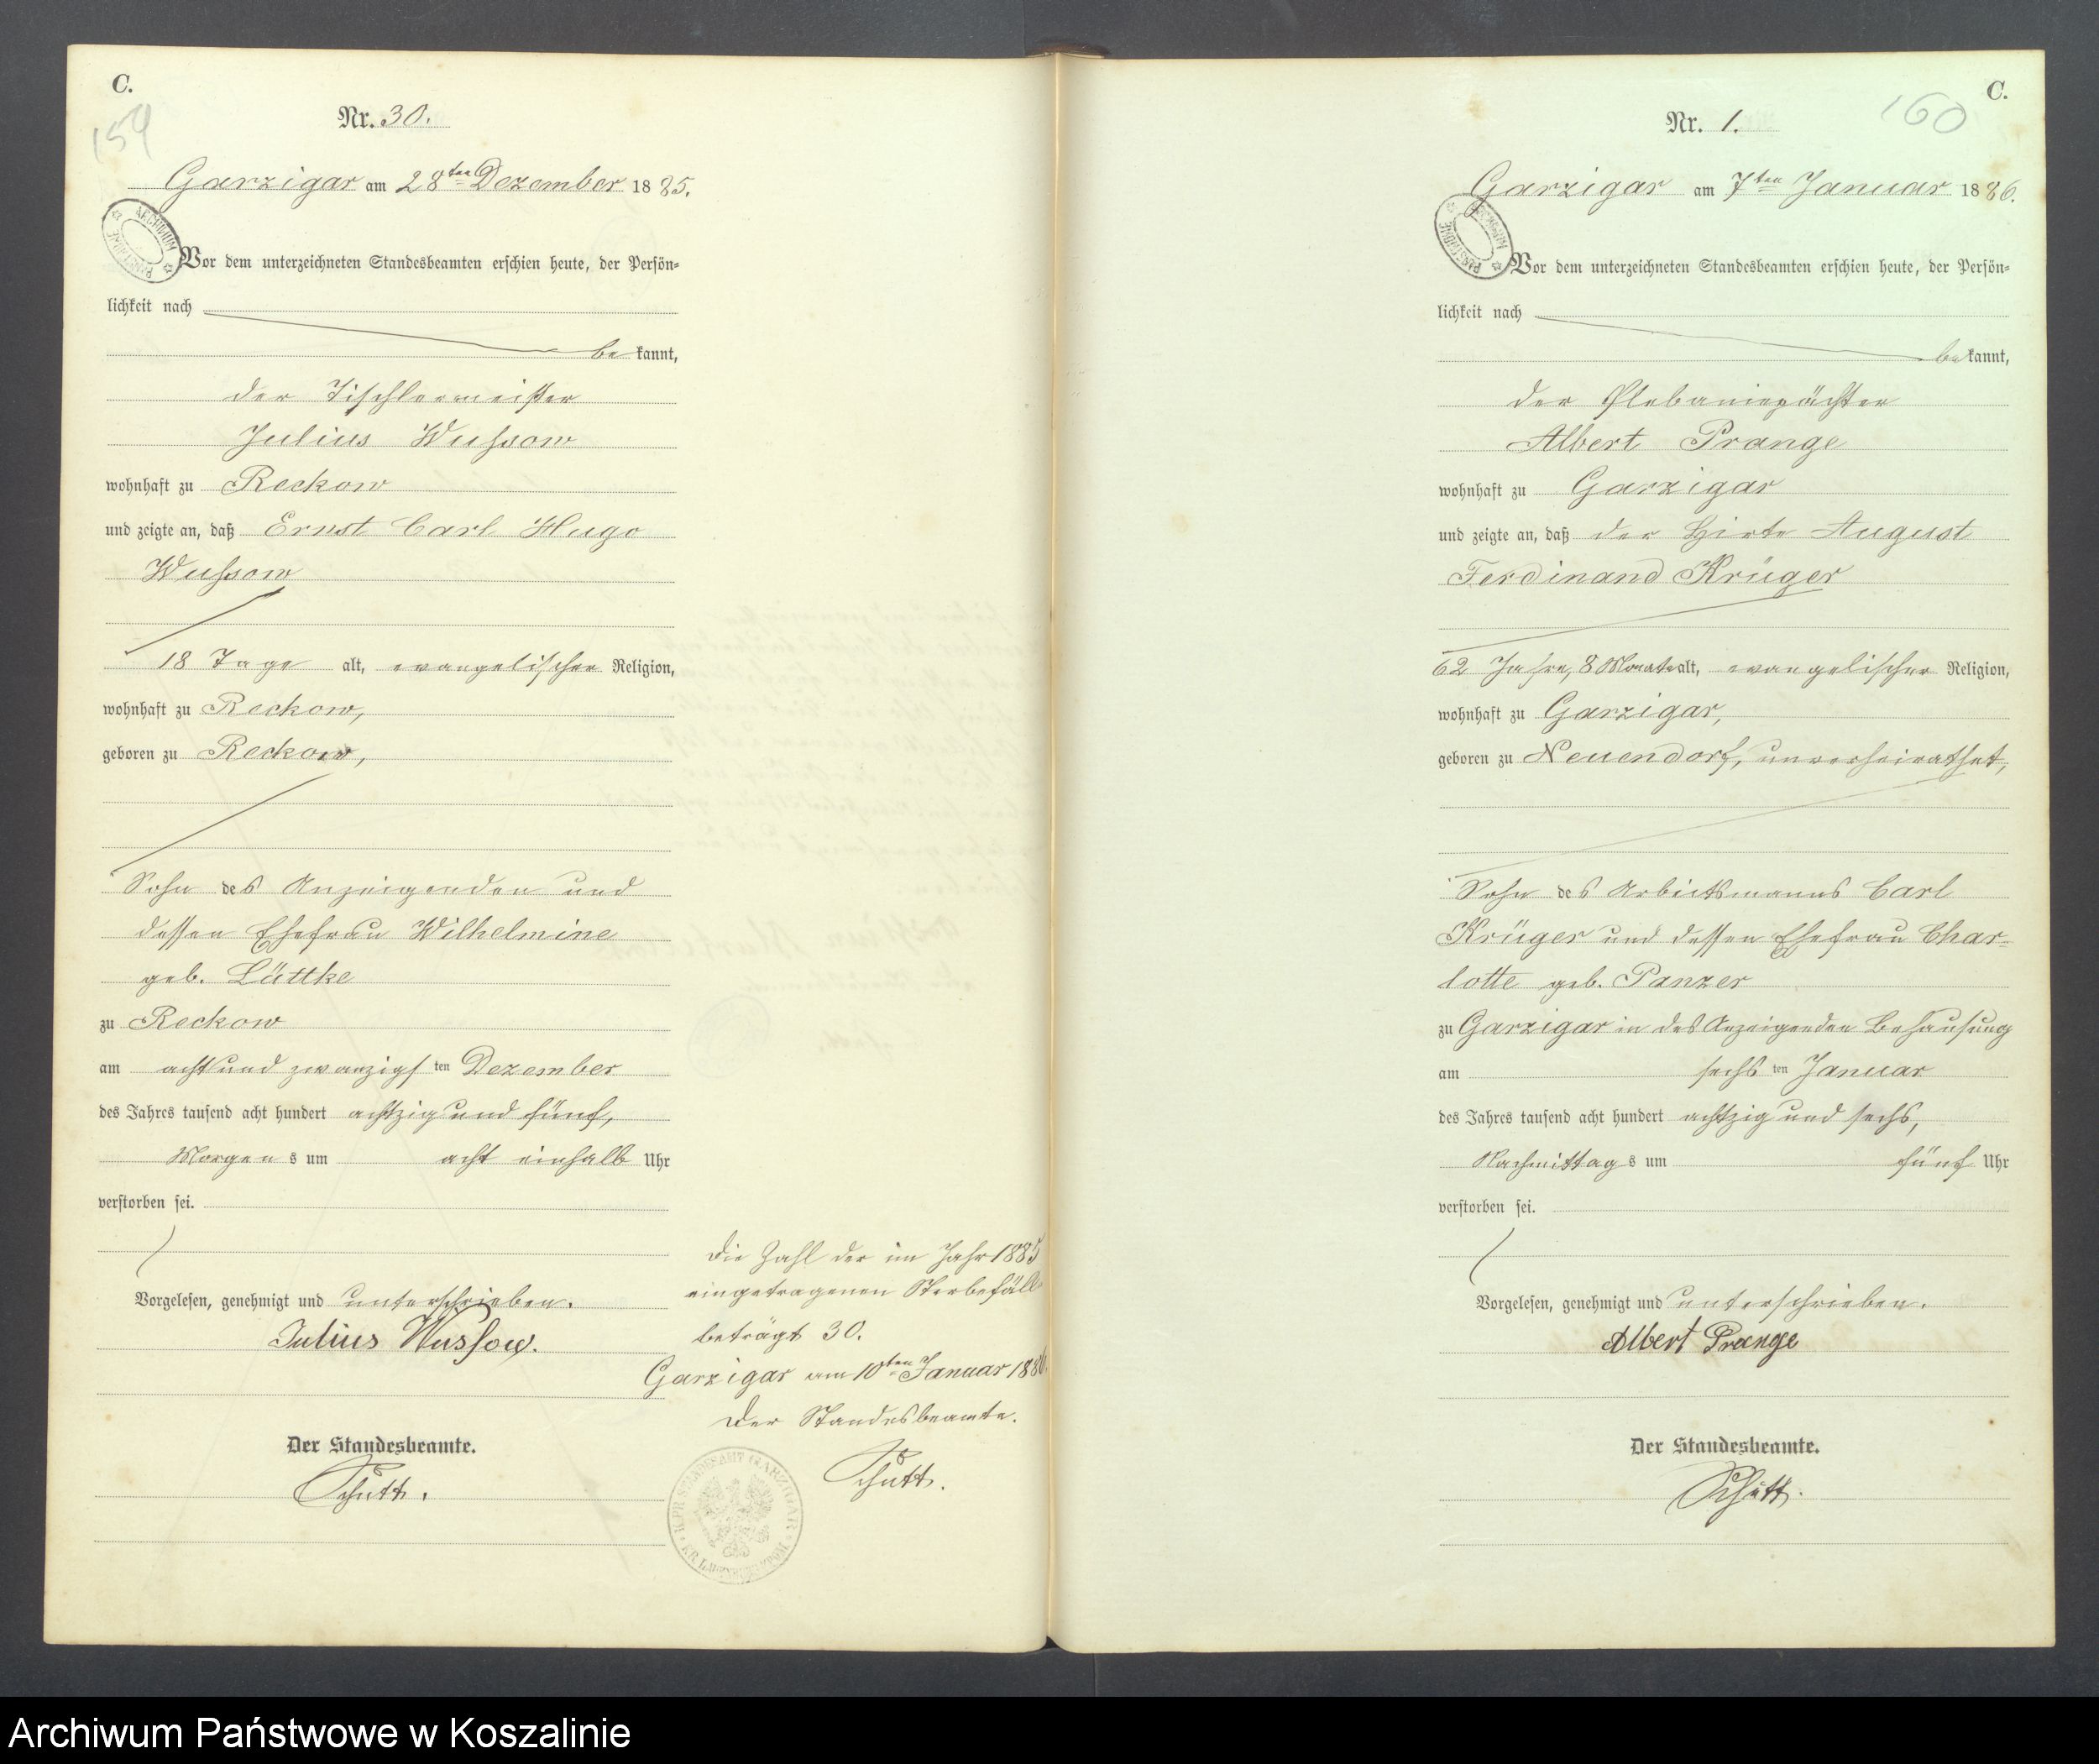 C.
159
Nr. 30.
Garzigar am 28ten Dezember 1885.
ARCHIWUM PAŃSTWOWE
Vor dem unterzeichneten Standesbeamten erschien heute, der Persön=
lichkeit nach
bekannt,
der Tischlermeister
Julius Wussow
wohnhaft zu Reckow
und zeigte an, daß Ernst Carl Hugo
Wussow
18 Tage alt, evangelischer Religion,
wohnhaft zu Reckow,
geboren zu Reckow,
Sohn des Anzeigenden und
dessen Ehefrau Wilhelmine
geb. Lüttke
zu Reckow
am acht und zwanzigsten Dezember
des Jahres tausend acht hundert achtzig und fünf,
Morgens um acht einhalb Uhr
verstorben sei.
Vorgelesen, genehmigt und unterschrieben.
Julius Wussow.
Der Standesbeamte.
Schütt.
Die Zahl der im Jahr 1885
eingetragenen Sterbefälle
beträgt 30.
Garzigar am 10ten Januar 1886.
Der Standesbeamte.
Schütt.
K. PR. STANDESAMT GARZIGAR
C.
160
Nr. 1.
Garzigar am 7ten Januar 1886.
ARCHIWUM PAŃSTWOWE
Vor dem unterzeichneten Standesbeamten erschien heute, der Persön=
lichkeit nach
bekannt,
der Plebaniepächter
Albert Prange
wohnhaft zu Garzigar
und zeigte an, daß der Hirte August
Ferdinand Krüger
62 Jahre, 8 Monate alt, evangelischer Religion,
wohnhaft zu Garzigar,
geboren zu Neuendorf, unverheirathet,
Sohn des Arbeitsmanns Carl
Krüger und dessen Ehefrau Char=
lotte geb. Panzer
zu Garzigar in des Anzeigenden Behausung
am sechsten Januar
des Jahres tausend acht hundert achtzig und sechs,
Nachmittags um fünf Uhr
verstorben sei.
Vorgelesen, genehmigt und unterschrieben.
Albert Prange
Der Standesbeamte.
Schütt.
Archiwum Państwowe w Koszalinie